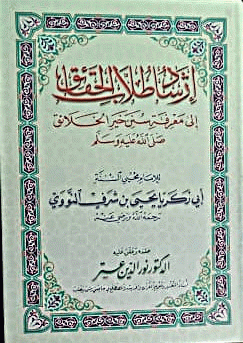 إرشاد طلاب الحقائق
إلى معرفة سنن خير الخلائق
صلى الله عليه وسلم
للإمام محيي السنة
أبي زكريا يحيى بن شرف النووي
رحمه الله ورضي عنه
حققه وعلق عليه
الدكتور نور الدين عتر